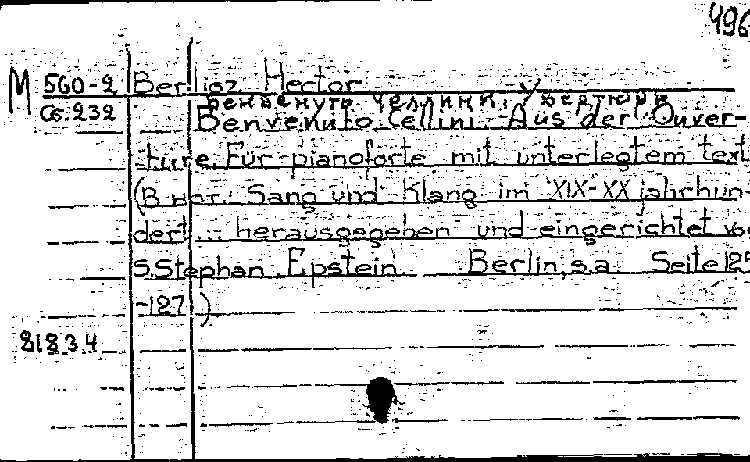 496
М 560-2 Berlioz Hector
Бенвенуто Челлини. Увертюра
Сб.232 Benvenuto Cellini. Aus der Ouver-
ture. Für pianoforte mit unterlegtem text
(В нот.: Sang und Klang im XIX-XX jahrhun-
dert... herausgegeben und eingerichtet von
S. Stephan Epstein. Berlin, s.a. Seite 125
-127)
81834